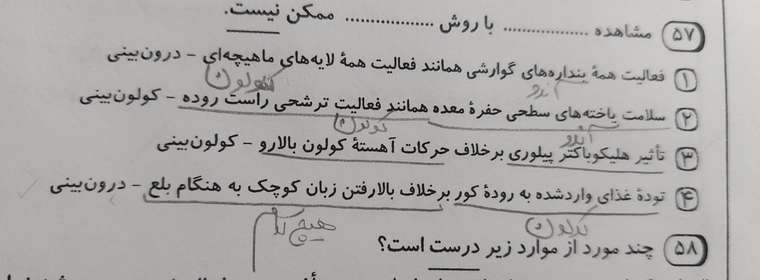 ۵۷ مشاهده ................ با روش ................ ممکن نیست.
۱ فعالیت همهٔ بنداره‌های گوارشی همانند فعالیت همهٔ لایه‌های ماهیچه‌ای - درون‌بینی
آندو کولون
۲ سلامت یاخته‌های سطحی حفرهٔ معده همانند فعالیت ترشحی راست روده - کولون‌بینی
آندو کولون
۳ تأثیر هلیکوباکتر پیلوری برخلاف حرکات آهستهٔ کولون بالارو - کولون‌بینی
۴ تودهٔ غذای واردشده به رودهٔ کور برخلاف بالارفتن زبان کوچک به هنگام بلع - درون‌بینی
کولون هیچ کدام
۵۸ چند مورد از موارد زیر درست است؟